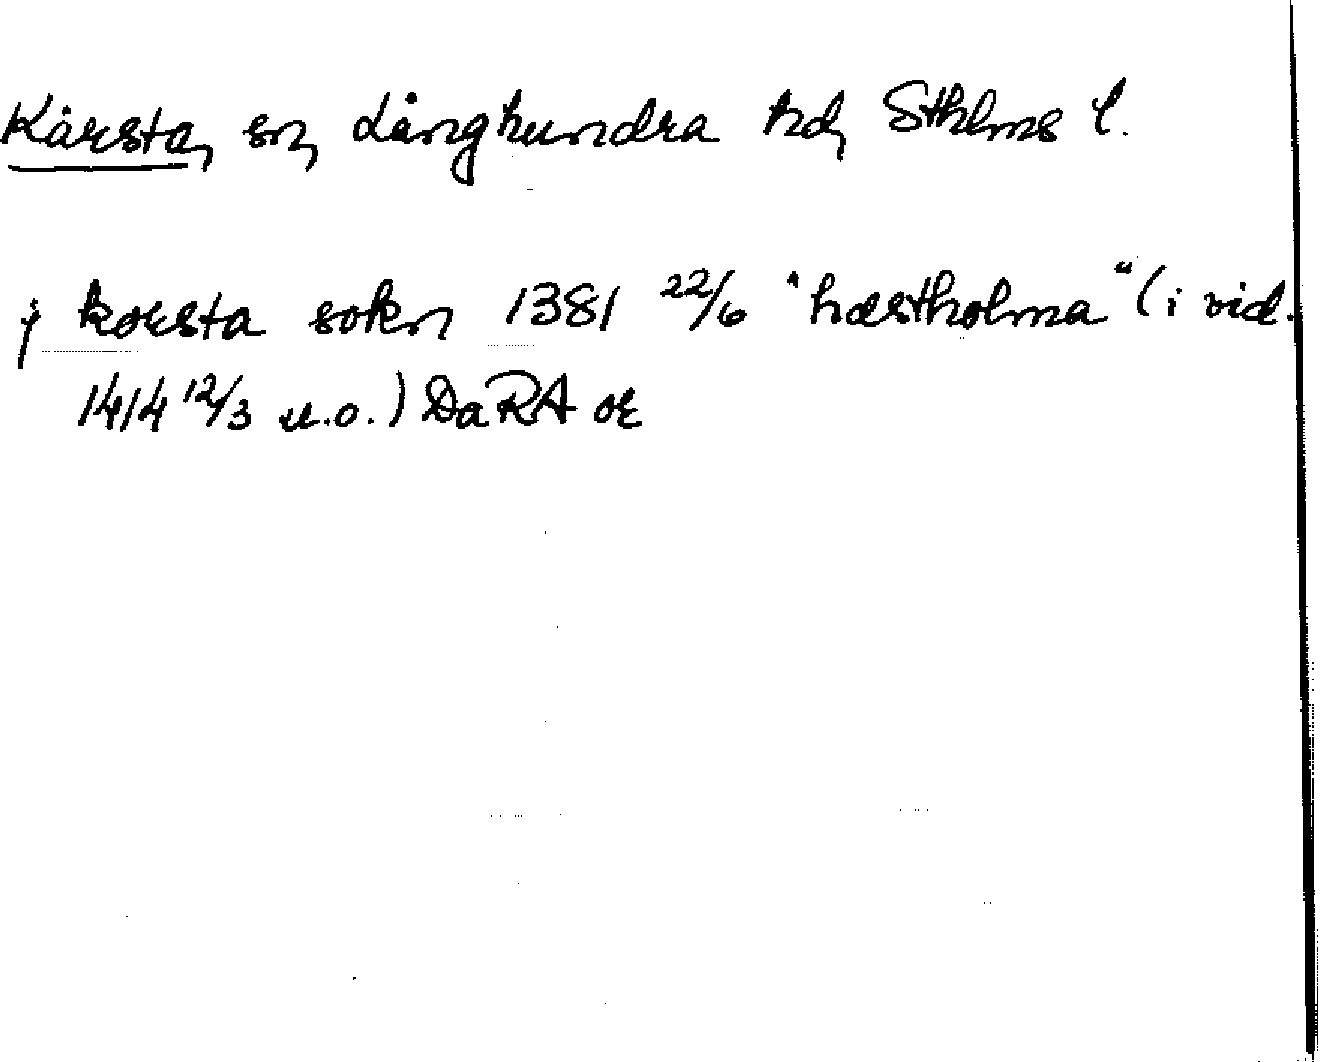 Kårsta, sn, Långhundra hd, Sthlms l.
j korsta sokn 1381 22/6 "hæstholma" (i vid.
1414 12/3 u.o.) DaRA or